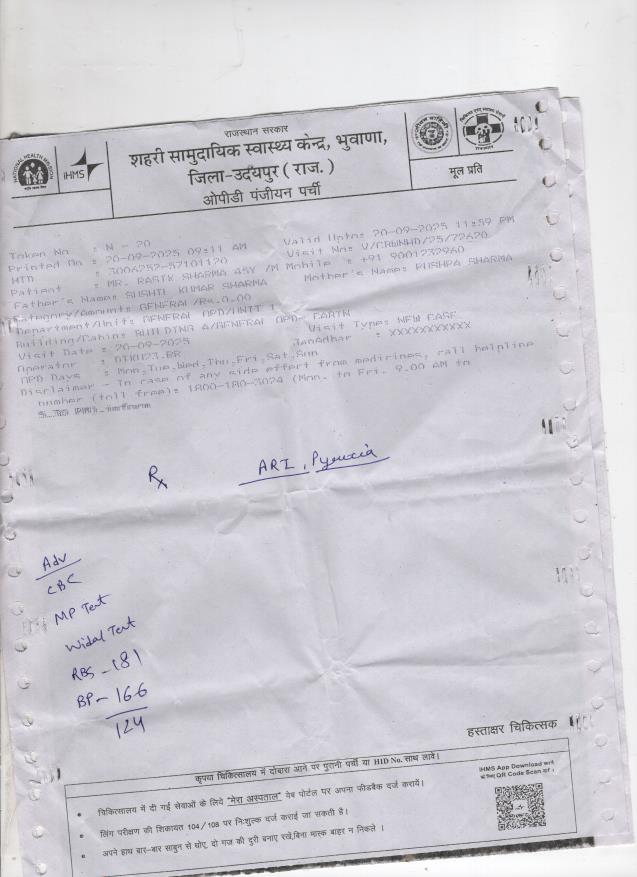 राजस्थान सरकार
शहरी सामुदायिक स्वास्थ्य केन्द्र, भुवाणा,
जिला-उदयपुर ( राज. )
ओपीडी पंजीयन पर्ची
मूल प्रति
NATIONAL HEALTH MISSION
iHMS
Token No : N - 20
Valid Upto: 20-09-2025 11:59 PM
Printed On : 20-09-2025 09:11 AM
Patient : MR. SHARMA 45Y /M
Mobile : +91 9001232960
Father's Name: KUMAR SHARMA
Mother's Name: PUSHPA SHARMA
Category/Amount: GENERAL /Rs.0.00
Department/Unit: GENERAL OPD/UNIT 1
Visit Type: NEW CASE
Visit Date : 20-09-2025
JanAdhar : XXXXXXXXXXX
OPD Days : Mon,Tue,Wed,Thu,Fri,Sat,Sun
Disclaimer - In case of any side effect from medicines, call helpline
number (toll free): 1800-180-3024 (Mon. to Fri. 9.00 AM to
Rx
ARI, Pyrexia
Adv
CBC
MP Test
Widal Test
RBS - 181
BP - 166
124
हस्ताक्षर चिकित्सक
कृपया चिकित्सालय में दोबारा आने पर पुरानी पर्ची या HID No. साथ लावें।
• चिकित्सालय में दी गई सेवाओं के लिये "मेरा अस्पताल" वेब पोर्टल पर अपना फीडबैक दर्ज करायें।
• लिंग परीक्षण की शिकायत 104/108 पर निःशुल्क दर्ज कराई जा सकती है।
• अपने हाथ बार-बार साबुन से धोए, दो गज की दुरी बनाए रखें,बिना मास्क बाहर न निकले ।
iHMS App Download करने
के लिए QR Code Scan करें ।